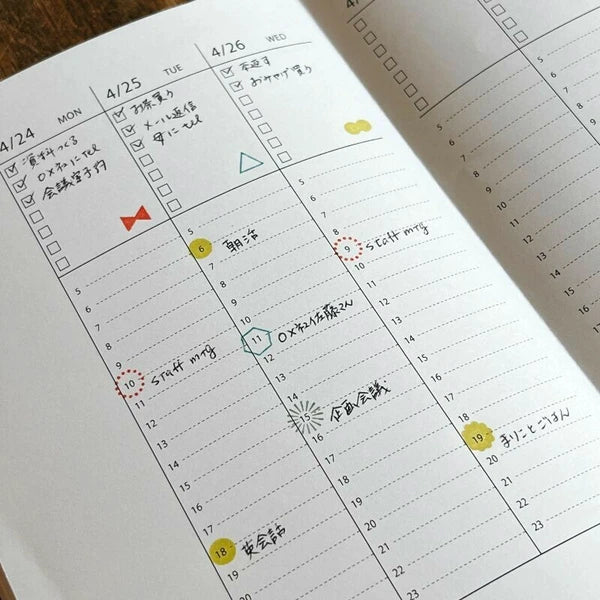 4/24 MON
資料つくる
○×社にtel
会議室予約
5
6
7
8
9
10 staff mtg
11
12
13
14
15
16
17
18 英会話
19
20
4/25 TUE
お茶買う
メール返信
母にtel
5
6 朝活
7
8
9
10
11 ○×社佐藤さん
12
13
14
15 企画会議
16
17
18
19
20
21
22
23
4/26 WED
本返す
おみやげ買う
5
6
7
8
9 staff mtg
10
11
12
13
14
15
16
17
18
19 まりことごはん
20
21
22
23
4/
5
6
7
8
9
10
11
12
13
14
15
16
17